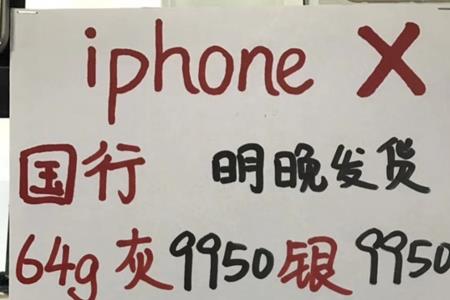 iphone X
国行 明晚发货
64g 灰9950 银 9950